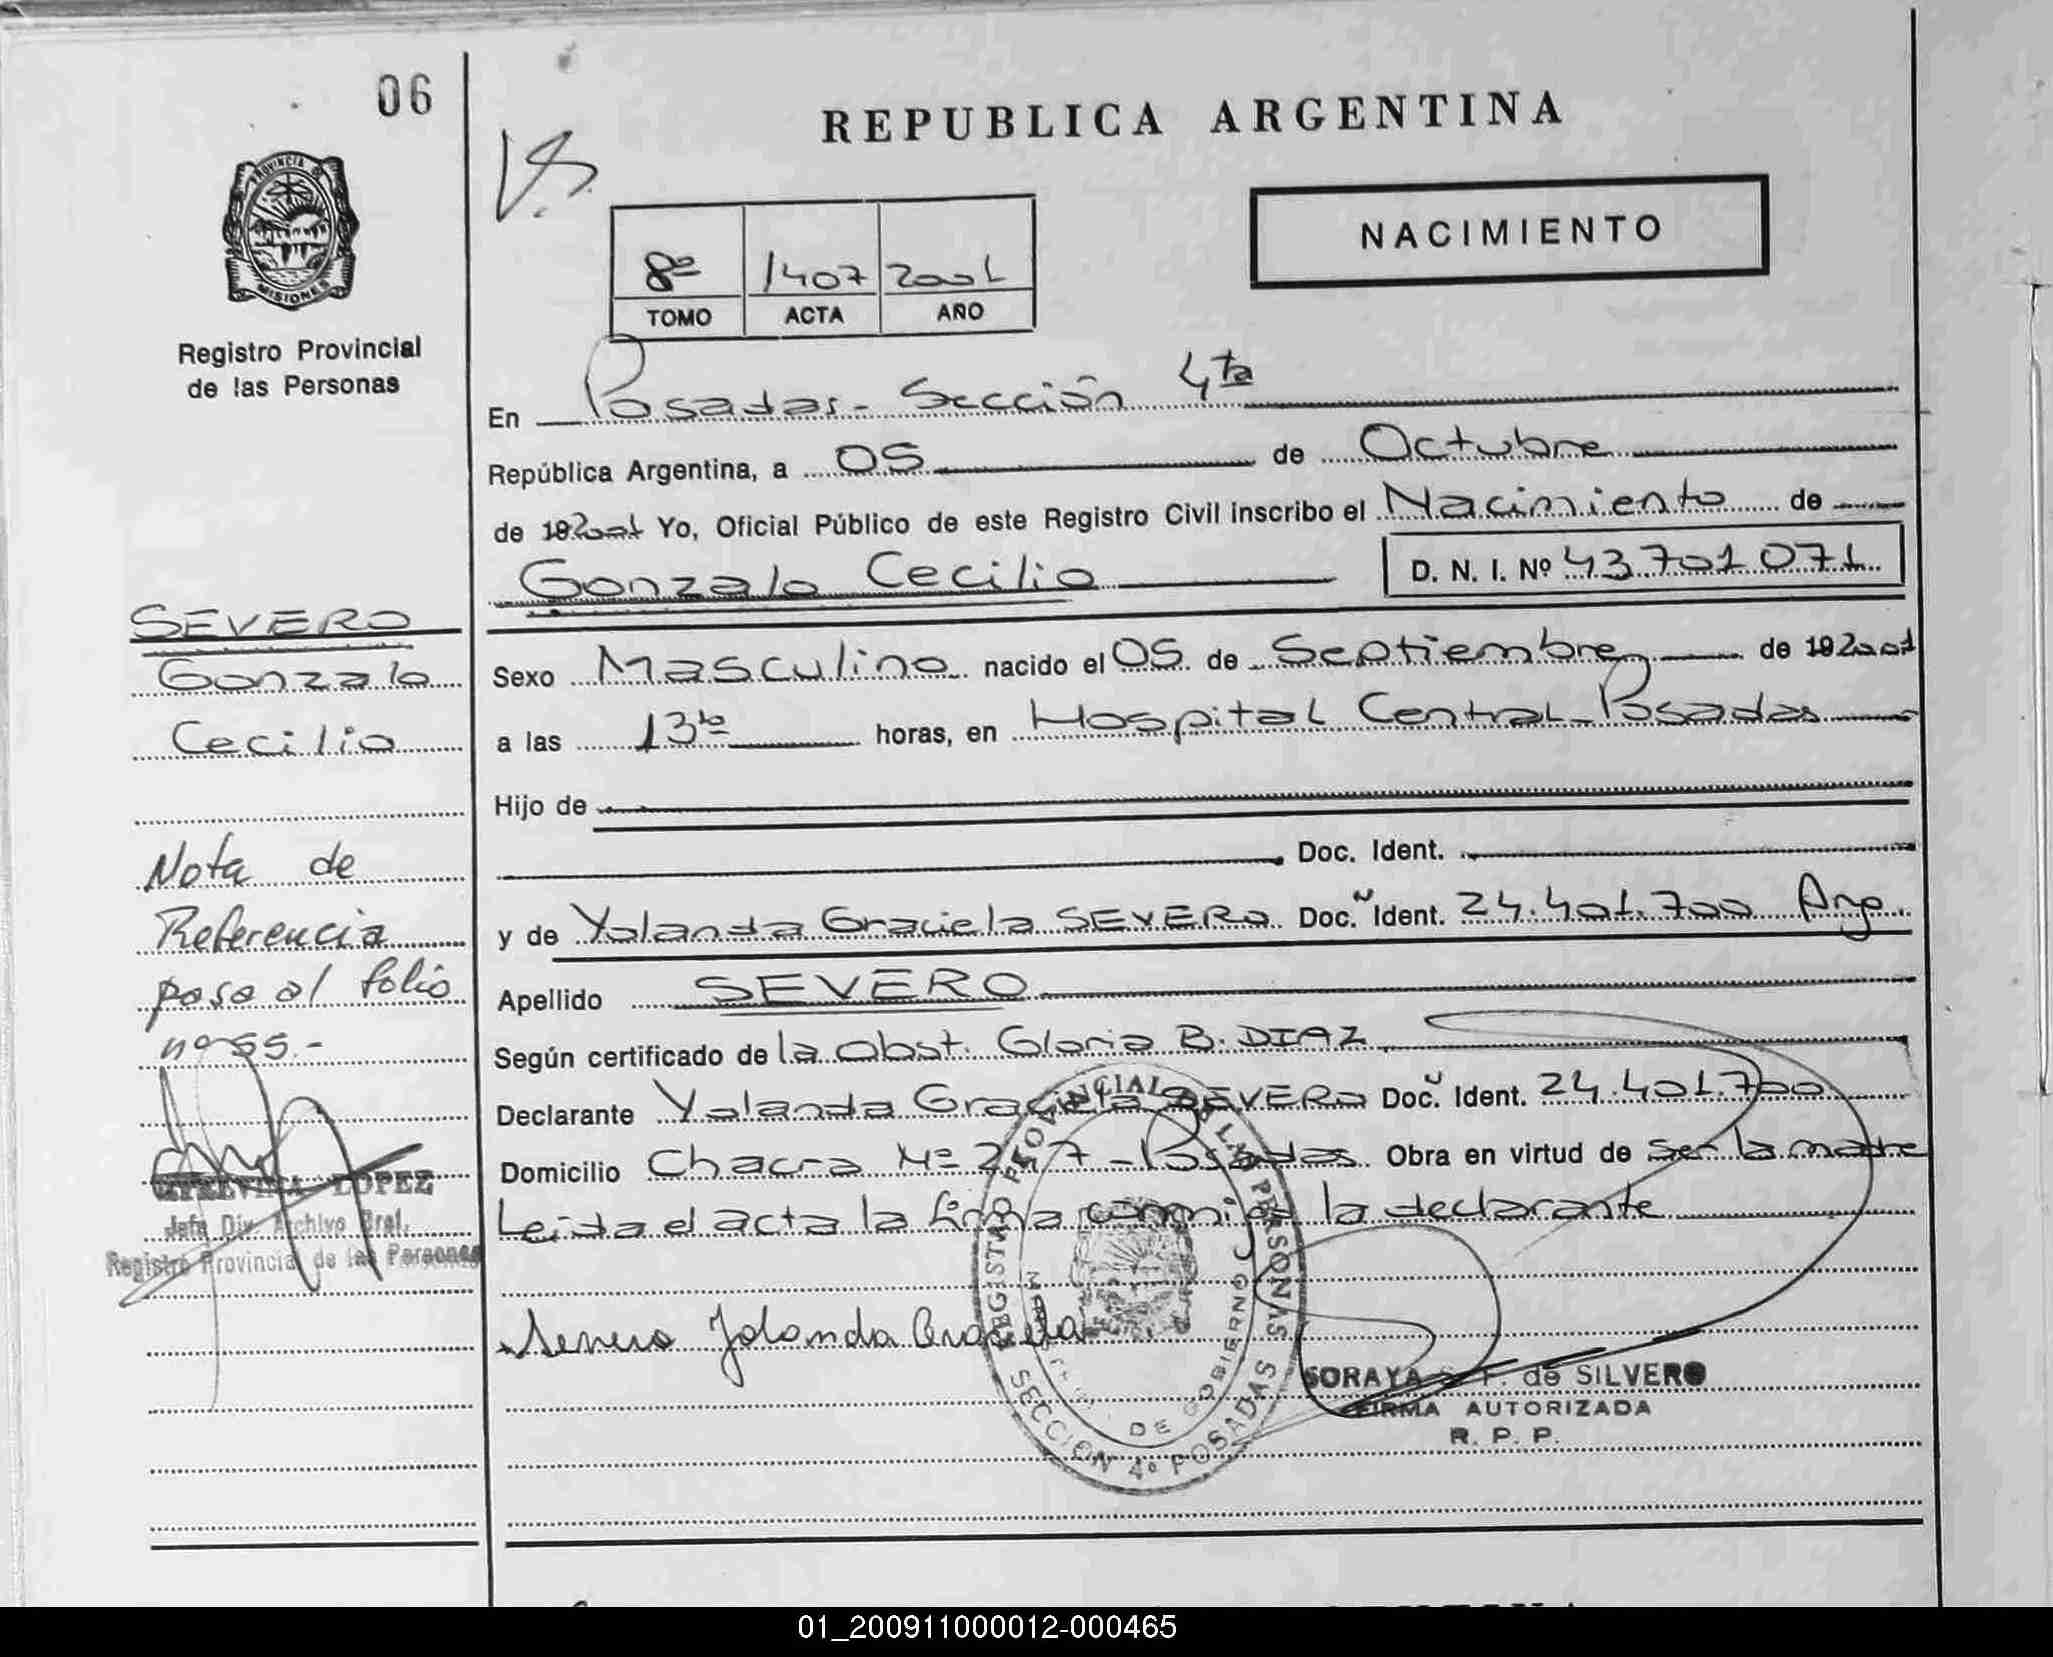 06
REPUBLICA ARGENTINA
PROVINCIA DE
MISIONES
NACIMIENTO
8º 1407 2001
TOMO ACTA AÑO
Registro Provincial
de las Personas
En Posadas - Sección 4ta
República Argentina, a 05 de Octubre
de 192001 Yo, Oficial Público de este Registro Civil inscribo el Nacimiento de
Gonzalo Cecilio D. N. I. Nº 43.701.071
SEVERO
Gonzalo
Cecilio
Sexo Masculino nacido el 05 de Septiembre de 192001
a las 13 horas, en Hospital Central - Posadas
Hijo de
Doc. Ident.
y de Yolanda Graciela SEVERO Doc. Ident. 24.401.700 Arg.
Apellido SEVERO
Según certificado de la Obst. Gloria B. DIAZ
Declarante Yolanda Graciela SEVERO Doc. Ident. 24.401.700
Domicilio Chacra Nº 247 - Posadas Obra en virtud de ser la madre
Leida el acta la firma conmigo la declarante
Nota de
Referencia
pasa al folio
nº 55.-
LOPEZ
Jefe Div. Archivo Gral.
Registro Provincial de las Personas
Severo Yolanda Graciela
REGISTRO PROVINCIAL DE LAS PERSONAS
DE GOBIERNO
SECCION 4º POSADAS
SORAYA de SILVERO
FIRMA AUTORIZADA
R. P. P.
01_200911000012-000465